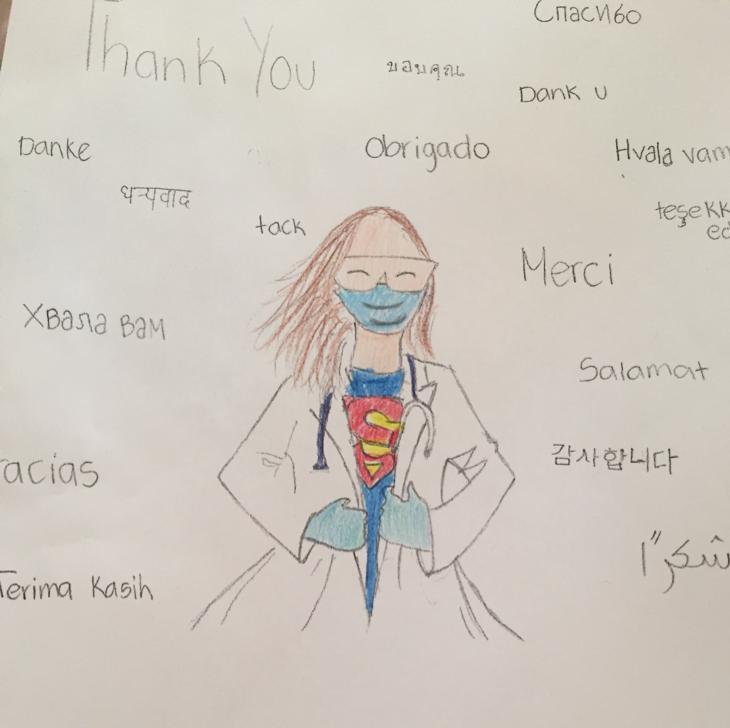 Спасибо
Thank You
ขอบคุณ
Dank u
Danke
Obrigado
Hvala vam
धन्यवाद
teşekk
ed
tack
Merci
Хвала вам
Salamat
S
감사합니다
racias
شكرًا
Terima Kasih